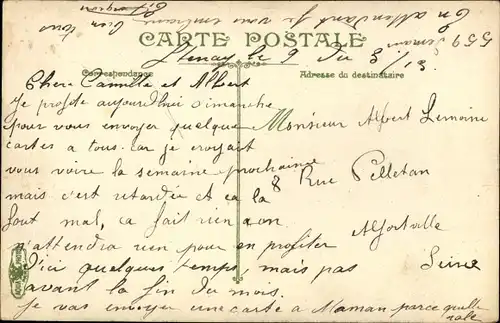 CARTE POSTALE
Stenay le 9 Du 3/13
Correspondance
Adresse du destinataire
Chers Camille et Albert
Je profite aujourd'hui Dimanche
pour vous envoyer quelque
cartes a tous car je croyait
vous voire la semaine prochaine
mais c'est retardée et ca la
fout mal, ca fait rien on
n'attendra rien pour en profiter
d'ici quelques temps, mais pas
avant la fin du mois.
Je vas envoyer une carte a Maman parce quelle
rale
En attendant je vous embrasse
bien tous
Monsieur Albert Lemoine
8 Rue Pelletan
Alfortville
Seine
559